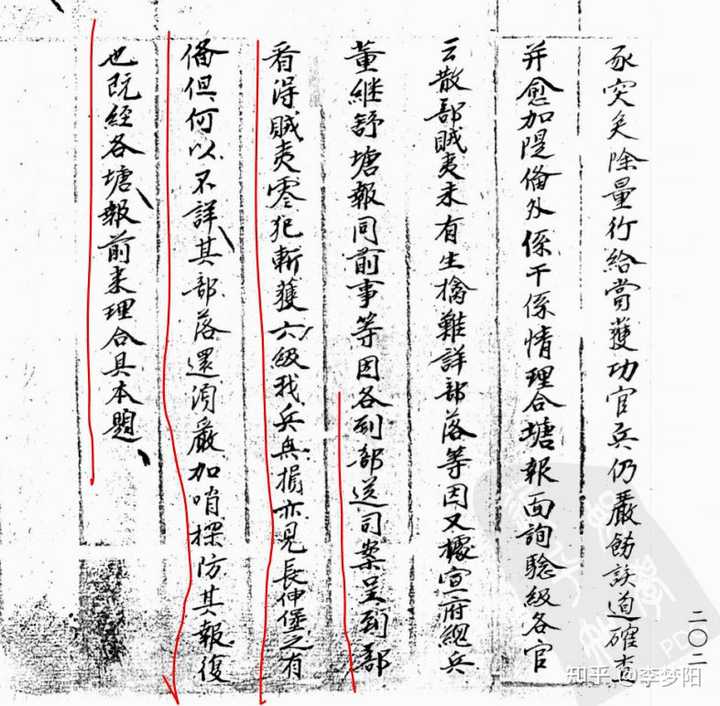 豕突矣除量行給賞獲功官兵仍嚴飭該道確查
并愈加隄備外係干係情理合塘報面詢驗級各官
云散部賊夷未有生擒難詳部落等因又據宣府總兵
董継舒塘報同前事等因各到部送司案呈到部
看得賊夷零犯斬獲六級我兵無損亦見長伸堡之有
備但何以不詳其部落還須嚴加哨探防其報復
也既經各塘報前来理合具本題
二〇二
知乎 @李梦阳